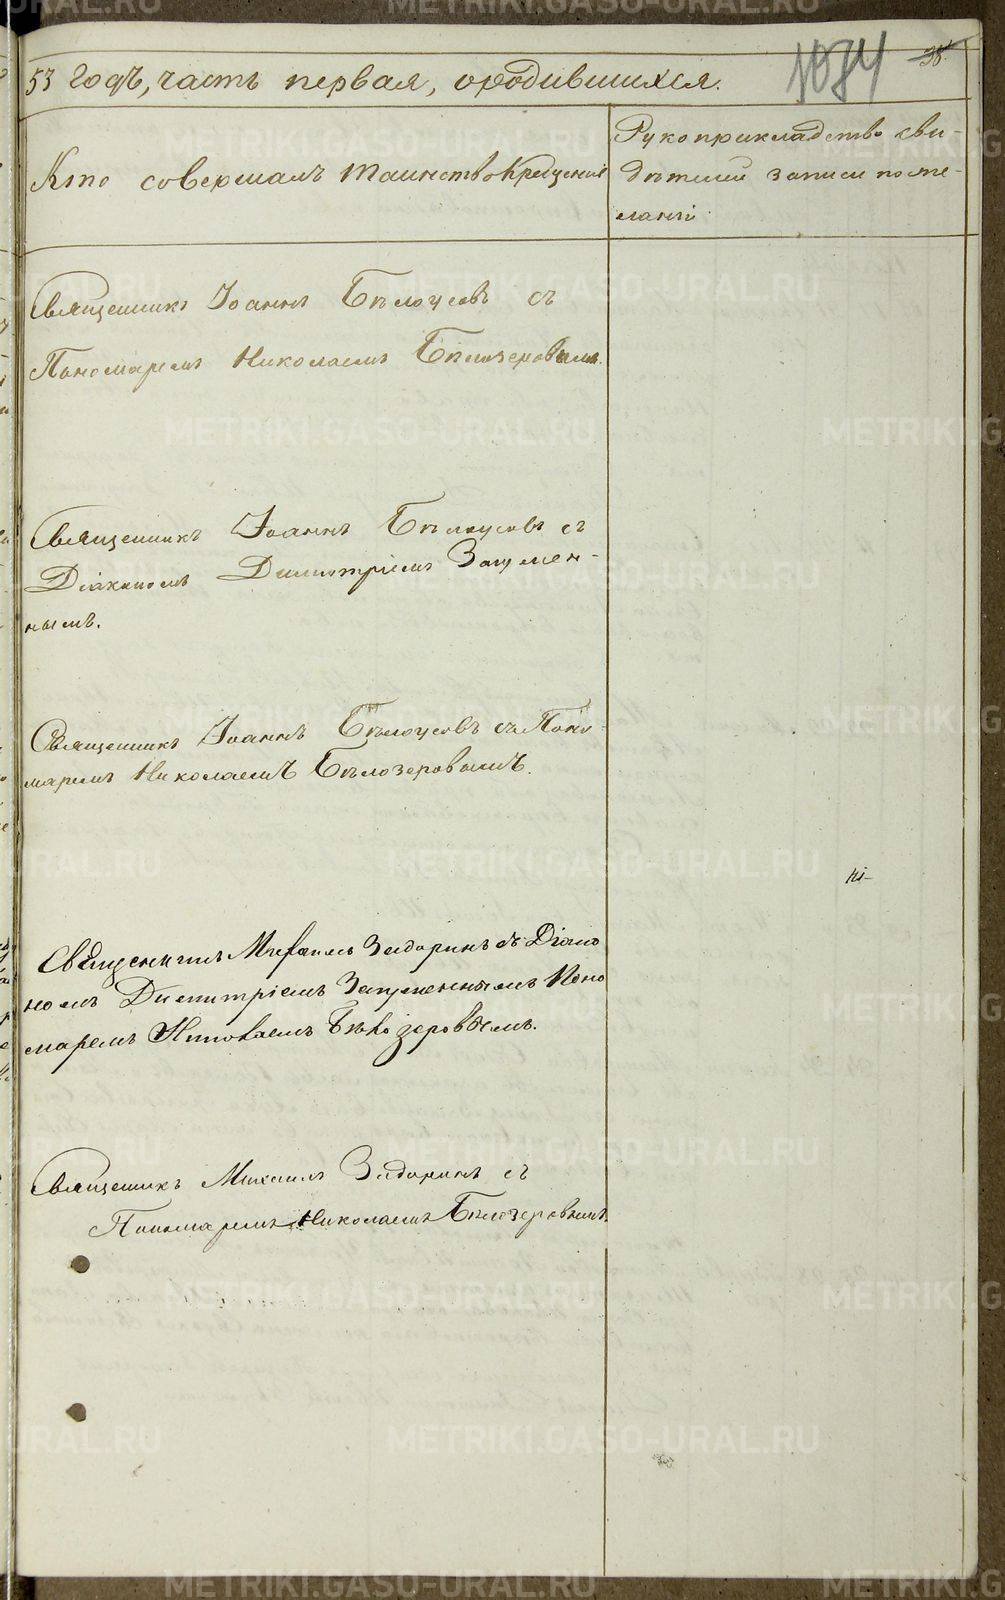 53 годъ, часть первая, ородившихся.
1084
38
Кто совершалъ таинство крещенія
Рукоприкладство сви-
дѣтелей записи по же-
ланію
Священникъ Іоаннъ Бѣлоусовъ съ
Пономаремъ Николаемъ Бѣлозеровымъ.
Священникъ Іоаннъ Бѣлоусовъ съ
Діакономъ Димитріемъ Загумен-
нымъ.
Священникъ Іоаннъ Бѣлоусовъ съ Поно-
маремъ Николаемъ Бѣлозеровымъ.
Священникъ Михаилъ Задоринъ съ Діако
номъ Димитріемъ Загуменнымъ Поно
маремъ Николаемъ Бѣлозеровымъ.
Священникъ Михаилъ Задоринъ съ
Пономаремъ Николаемъ Бѣлозеровымъ.
METRIKI.GASO-URAL.RU